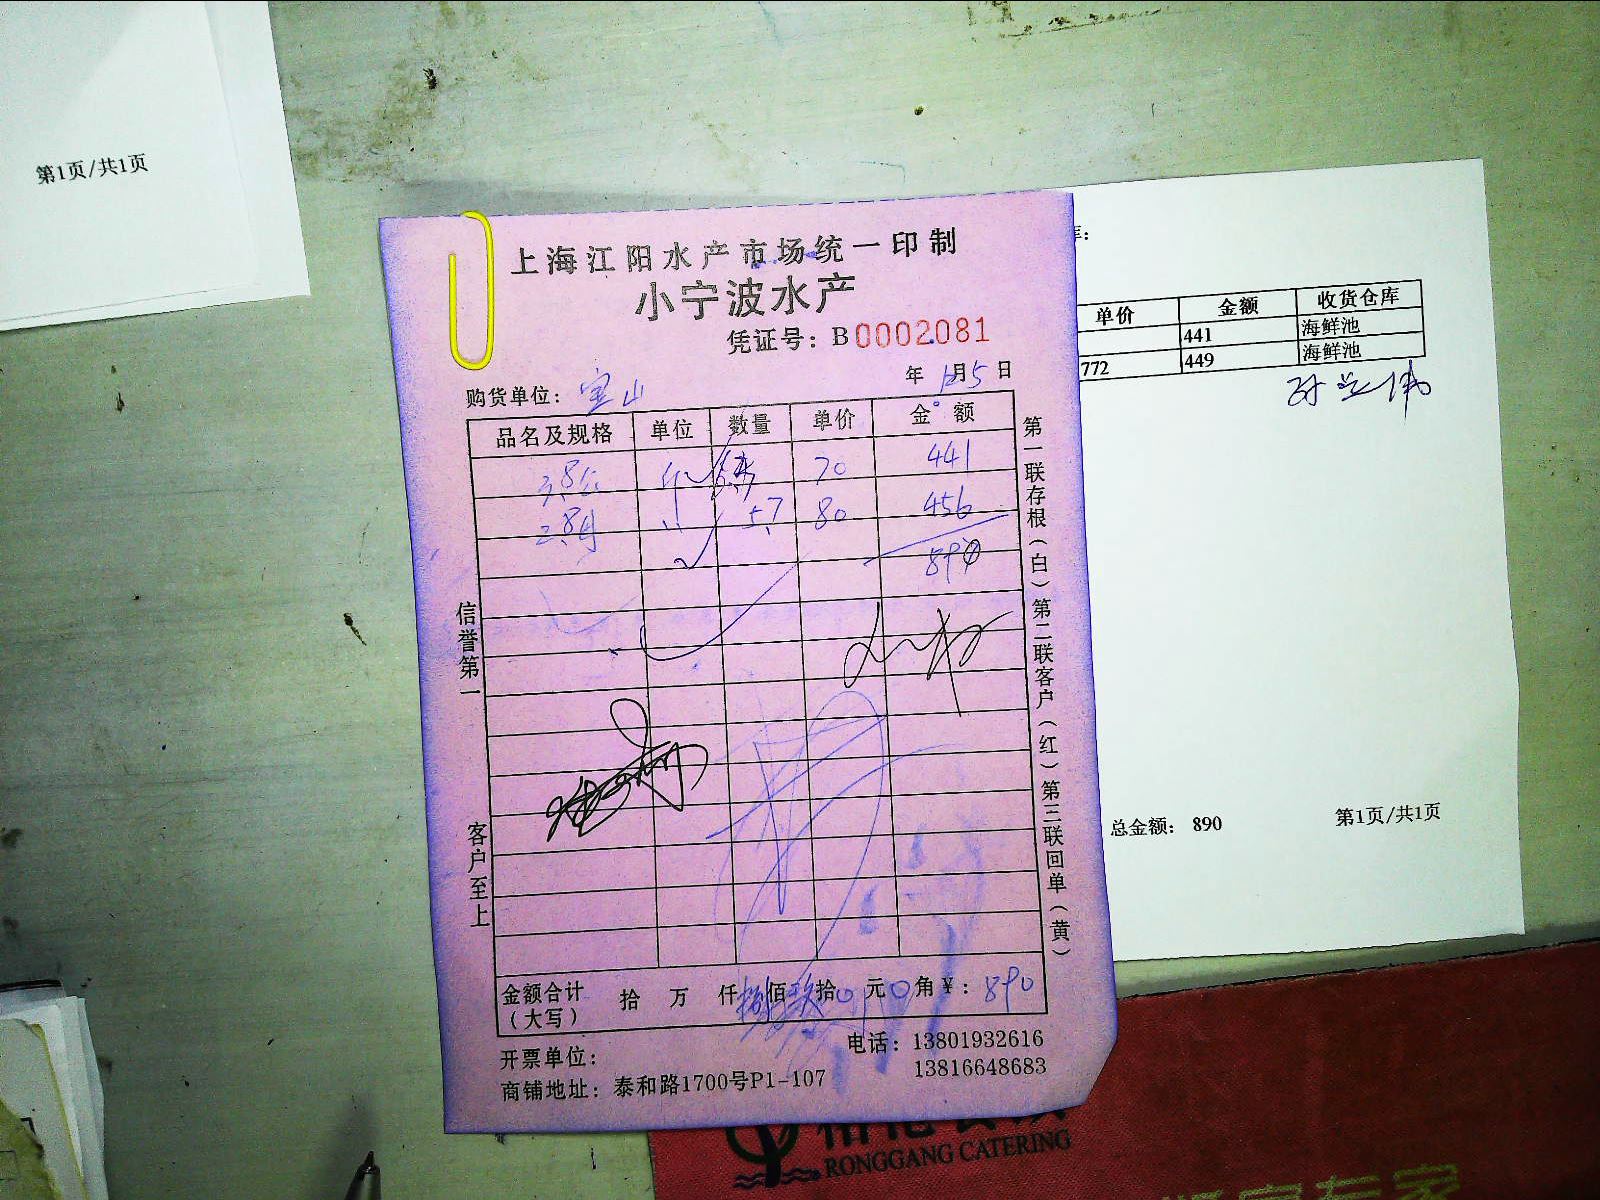 第1页/共1页
上海江阳水产市场统一印制
小宁波水产
凭证号：B0002081
购货单位：宝山
年 12月5日
品名及规格 单位 数量 单价 金额
3.8 70 441
2.8 5.7 80 456
890
信誉第一
客户至上
第一联存根（白）第二联客户（红）第三联回单（黄）
金额合计（大写） 拾 万 仟 捌佰玖拾0元0角￥：890
开票单位：
电话：13801932616
13816648683
商铺地址：泰和路1700号P1-107
库：
单价 金额 收货仓库
441 海鲜池
772 449 海鲜池
总金额： 890
第1页/共1页
RONGGANG CATERING